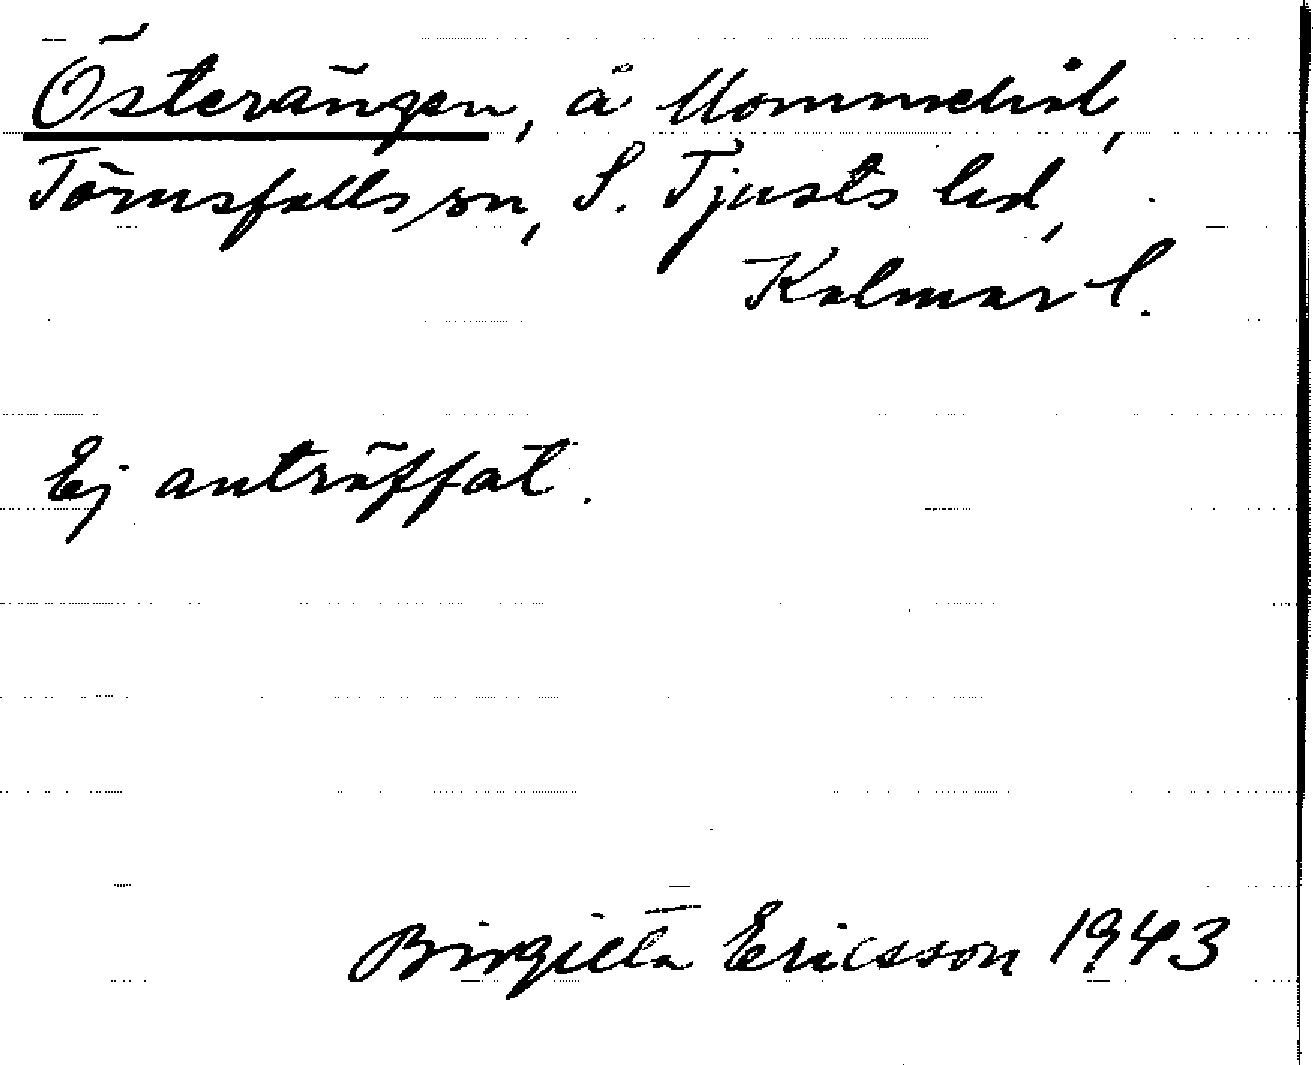 Österängen, å Mommehål,
Törnsfalls sn, S. Tjusts hd,
Kalmar l.
Ej anträffat.
Birgitta Ericsson 1943